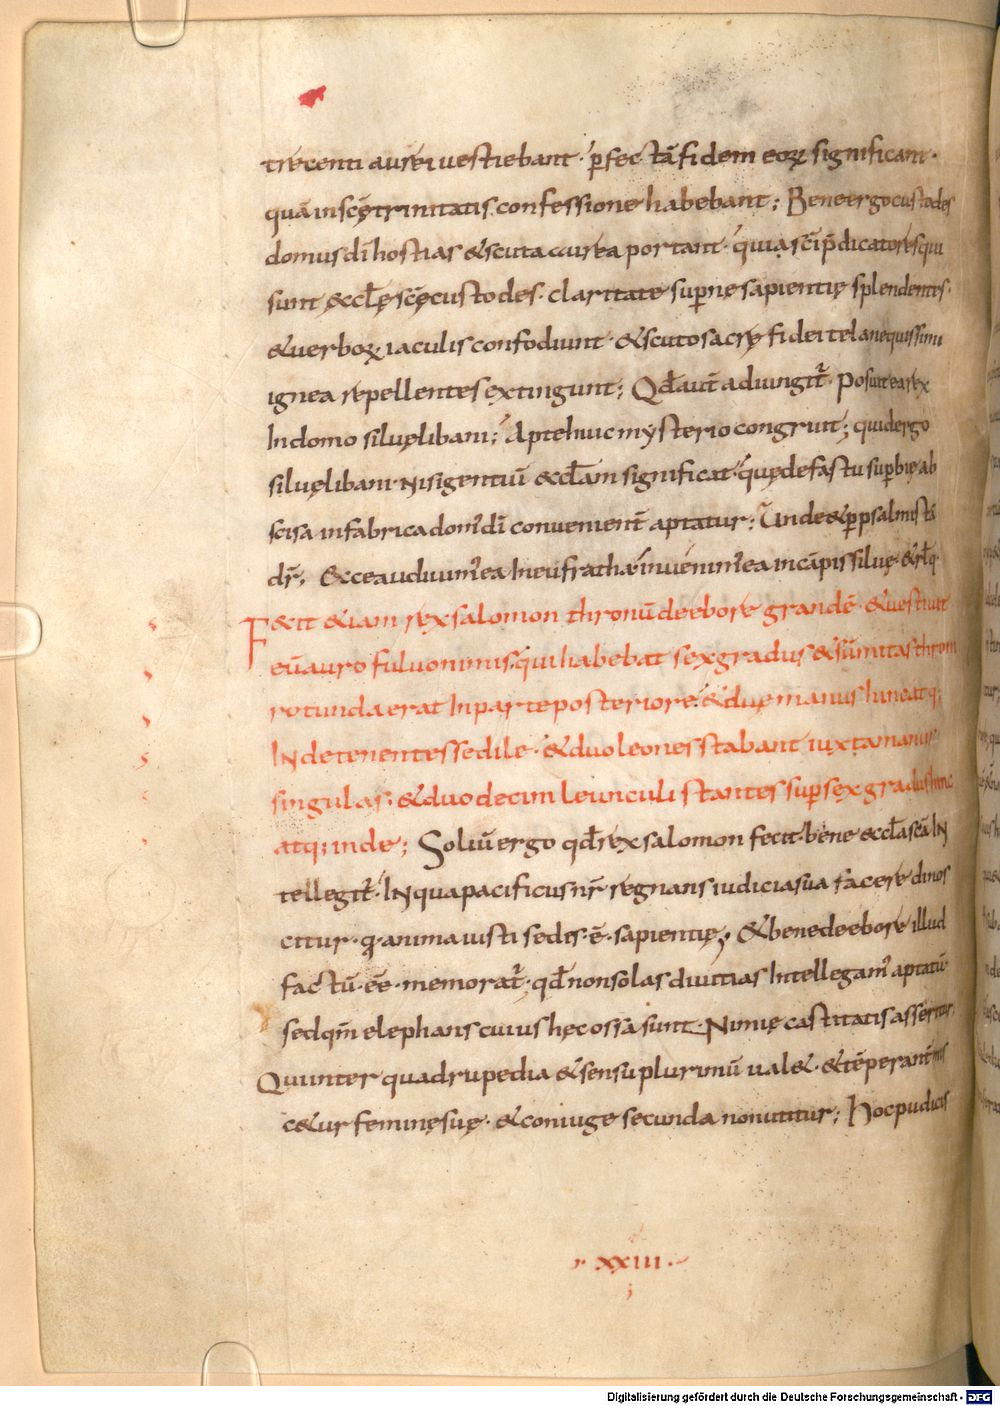 trecenti aurei uestiebant · ꝑfectā fidem eoꝝ significant ·
quā in scę trinitatis confessione habebant; Bene ergo custodes
domus dī hostias & scuta aurea portant · quia scī p̄dicatores qui
sunt ęccl̄ę scę custodes · claritate supernę sapientię splendentes ·
& uerboꝝ iaculis confodiunt · & scuto sacrę fidei tela nequissimi
ignea repellentes extingunt; Qđ aut̄ adiungit̄ · Posuit ea rex
In domo siluę libani; Apte huic mysterio congruit; quid ergo
siluę libani · Nisi gentiū ęccl̄am significat · quę de fastu suꝑbię ab
scisa in fabrica dom' dī conuenient̄ aptatur; Unde & ꝑ psalmistā
dr̄; Ecce audiuim' ea In eufratha · inuenim' ea in cāpis siluę · & rl̄q·
Fecit &iam rex salomon thronū de ebore grandē · & uestiuit
eū auro fuluo nimis · qui habebat sex gradus & sūmitas throni
rotunda erat In parte posteriore · & duę manus hinc atq;
INde tenentes sedile · & duo leones stabant iuxta manus
singulas · & duodecim leunculi stantes suꝑ sex gradus hinc
atq; inde; Soliū ergo qđ rex salomon fecit · bene ęccl̄a scā IN
tellegit̄ · IN qua pacificus nr̄ regnans iudicia sua facere dinos
citur · q· anima iusti sedis · ē · sapientię; & bene de ebore illud
factū · ēē · memorat̄ · qđ non solas diuitias Intellegam' aptatū ·
sed qm̄ elephans cuius hęc ossa sunt · Nimię castitatis asseritur ·
Qui inter quadrupedia & sensu plurimū ual& · & tēperant̄ mis
c&ur feminę suę · & coniuge secunda non utitur; Hoc pudicis
· xxiii ·
Digitalisierung gefördert durch die Deutsche Forschungsgemeinschaft - DFG